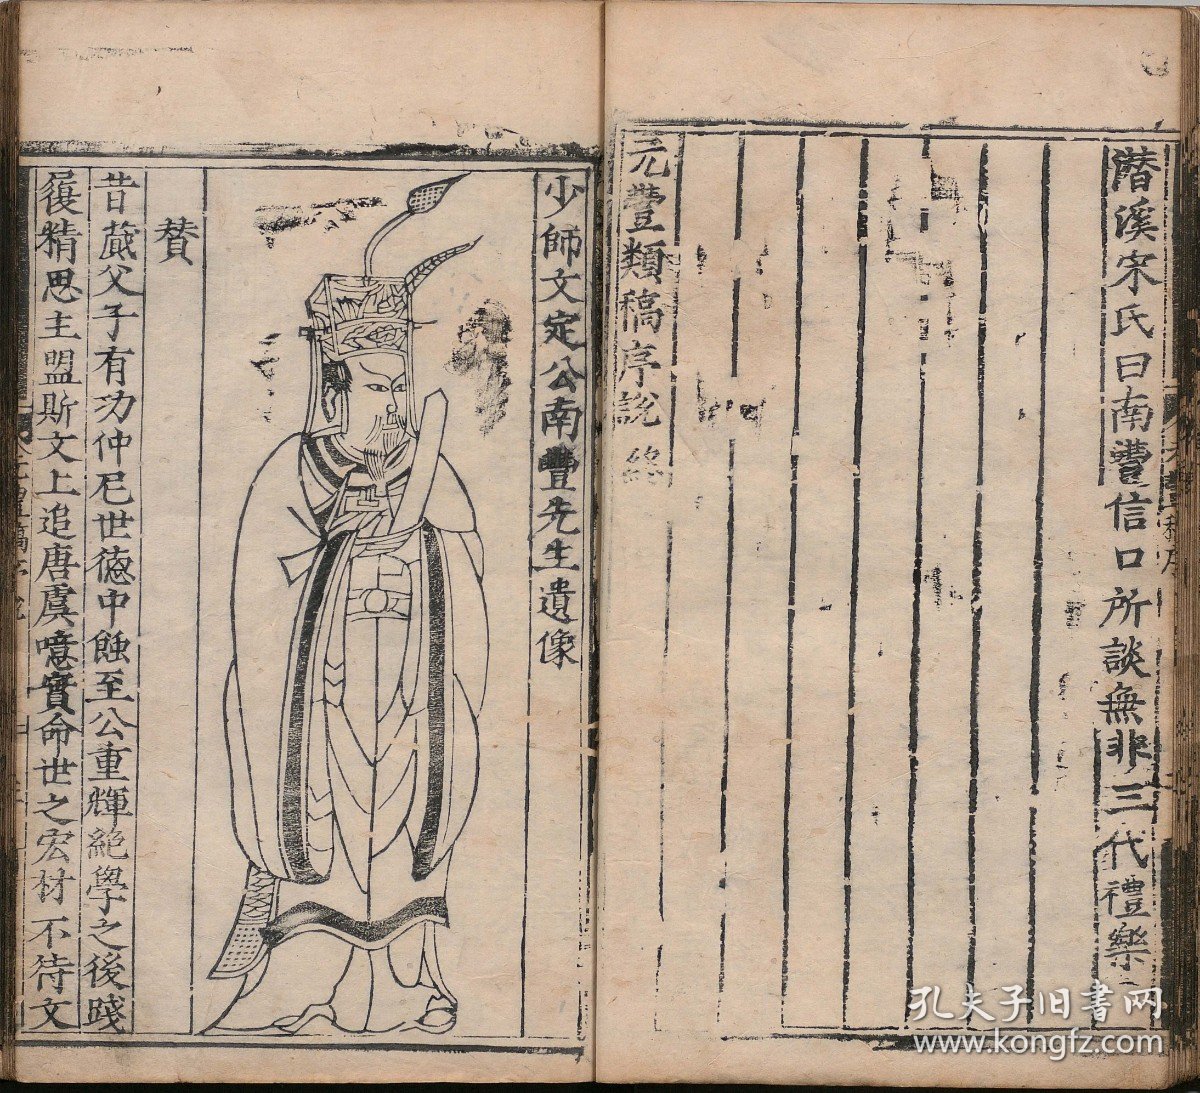 潛溪宋氏曰南豐信口所談無非三代禮樂
元豐類稿序說終
少師文定公南豐先生遺像
贊
昔蔵父子有功仲尼世德中蝕至公重輝絕學之後踐
履精思主盟斯文上追唐虞噫實命世之宏材不待文
孔夫子旧书网
www.kongfz.com